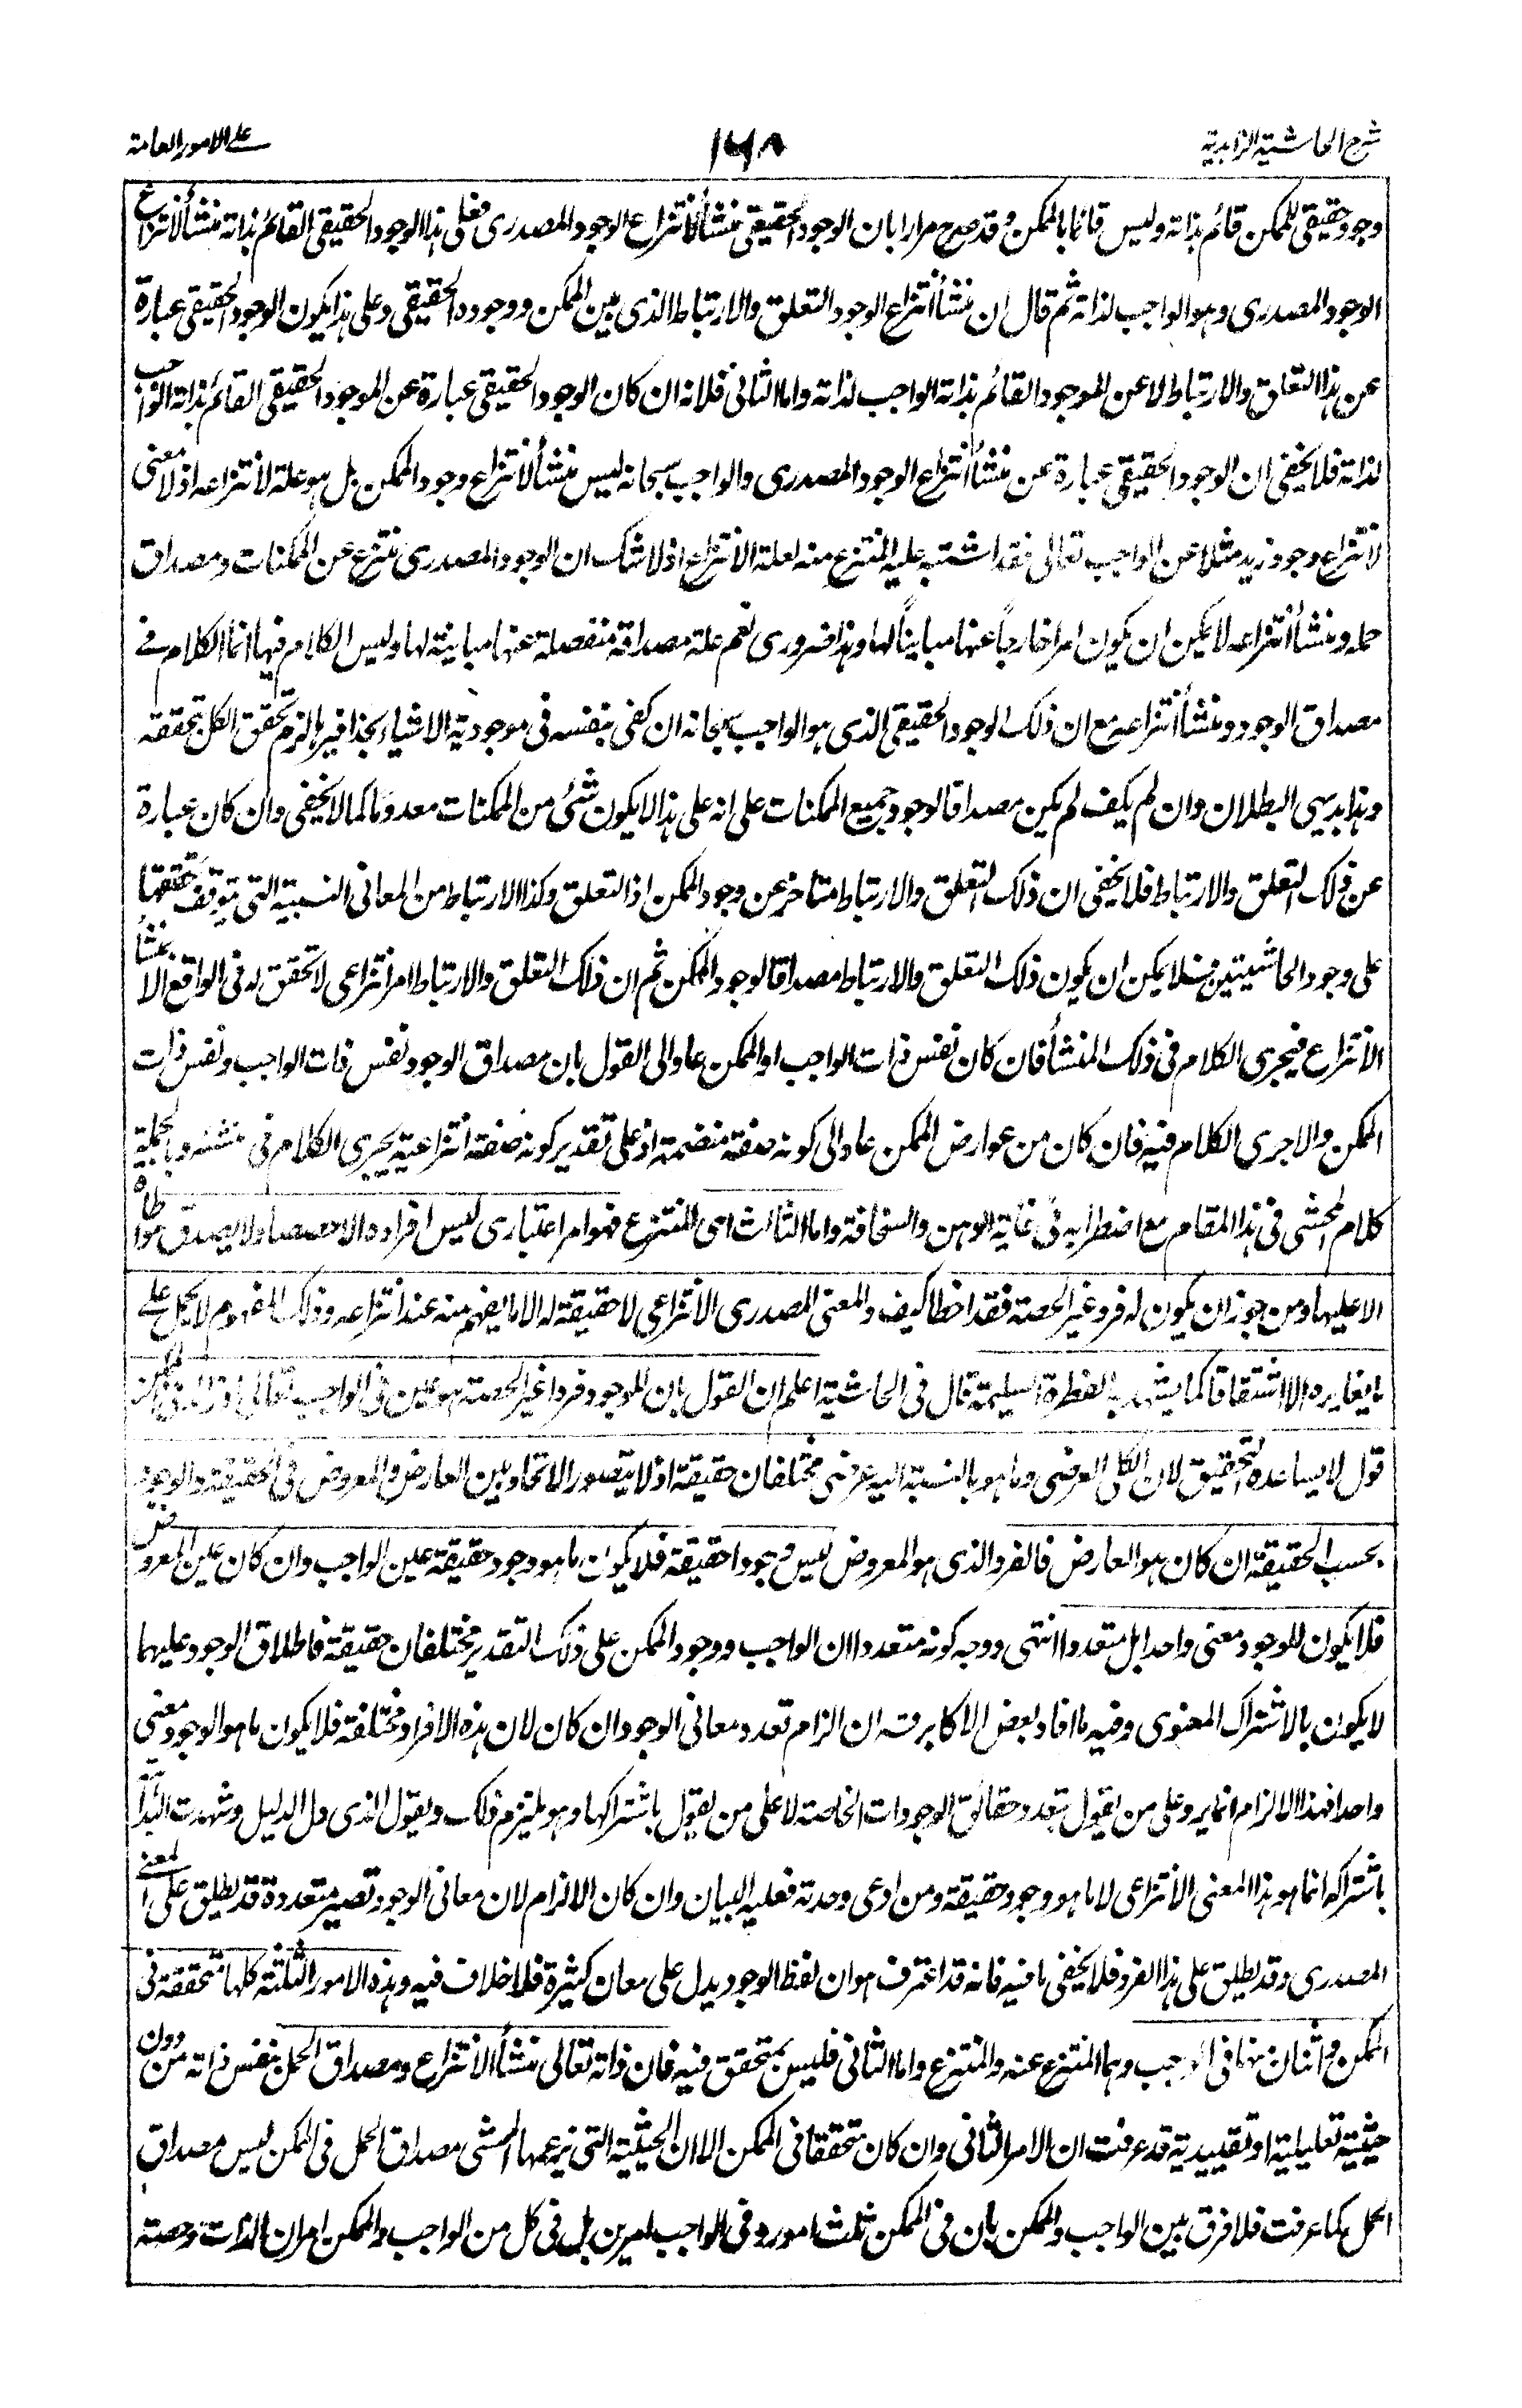 شرح الحاشية الزاهدية
١٦٨
على الامور العامة
وجود حقيقى للممكن قائم بذاته وليس قائما بالممكن وقد صرح مرارا بان الوجود الحقيقى منشأ لانتزاع الوجود المصدرى فعلى هذا الوجود الحقيقى القائم بذاته منشأ لانتزاع
الوجود المصدرى وهو الواجب لذاته ثم قال ان منشأ انتزاع الوجود التعلق والارتباط الذى بين الممكن ووجوده الحقيقى وعلى هذا يكون الوجود الحقيقى عبارة
عن هذا التعلق والارتباط لا عن الموجود القائم بذاته الواجب لذاته واما الثانى فلانه ان كان الوجود الحقيقى عبارة عن الموجود الحقيقى القائم بذاته الواجب
لذاته فلا يخفى ان الوجود الحقيقى عبارة عن منشأ انتزاع الوجود المصدرى والواجب سبحانه ليس منشأ لانتزاع وجود الممكن بل هو علة لانتزاعه اذ لا معنى
لانتزاع وجود زيد مثلا عن الواجب تعالى فقد اشتبه عليه المنتزع منه لعلة الانتزاع اذ لا شك ان الوجود المصدرى ينتزع عن الممكنات ومصداق
حمله ومنشأ انتزاعه لا يمكن ان يكون امرا خارجاً عنها مبايناً لها وهذا ضرورى نعم علة مصداقه منفصلة عنها مباينة لها وليس الكلام فيها انما الكلام فى
مصداق الوجود ومنشأ انتزاعه مع ان ذلك الوجود الحقيقى الذى هو الواجب سبحانه ان كفى بنفسه فى موجودية الاشياء بحذافيرها لزم تحقق الكل بتحققه
وهذا بديهى البطلان وان لم يكف لم يكن مصداقا لوجود جميع الممكنات على انه على هذا لا يكون شئ من الممكنات معدوما كما لا يخفى وان كان عبارة
عن ذلك التعلق والارتباط فلا يخفى ان ذلك التعلق والارتباط متاخر عن وجود الممكن اذ التعلق وكذا الارتباط من المعانى النسبية التى يتوقف تحققها
على وجود الحاشيتين فلا يمكن ان يكون ذلك التعلق والارتباط مصداقا لوجود الممكن ثم ان ذلك التعلق والارتباط امر انتزاعى لا تحقق له فى الواقع الا بمنشأ
الانتزاع فيجرى الكلام فى ذلك المنشأ فان كان نفس ذات الواجب او الممكن عاد الى القول بان مصداق الوجود نفس ذات الواجب ونفس ذات
الممكن والا جرى الكلام فيه فان كان من عوارض الممكن عاد الى كونه صفة منضمة اذ على تقدير كونه صفة انتزاعية يجرى الكلام فى منشئه وبالجملة
كلام المحشى فى هذا المقام مع اضطرابه فى غاية الوهن والسخافة واما الثالث اى المنتزع فهو امر اعتبارى ليس افراده الا حصصا ولا يصدق مواطاة
الا عليها ومن جوز ان يكون له فرد غير الحصة فقد اخطأ كيف والمعنى المصدرى الانتزاعى لا حقيقة له الا ما يفهم منه عند انتزاعه وذلك المفهوم لا يحمل على
ما يغايره الا اشتقاقا كما يشهد به الفطرة السليمة قال فى الحاشية اعلم ان القول بان للوجود فردا غير الحصة هو عين فى الواجب تعالى وزائد فى الممكن
قول لا يساعده التحقيق لان الكلى العرضى وما هو بالنسبة اليه عرضى مختلفان حقيقة اذ لا يتصور الاتحاد بين العارض والمعروض فى الحقيقة والوجود
بحسب الحقيقة ان كان هو العارض فالفرد الذى هو المعروض ليس وجودا حقيقة فلا يكون ما هو وجود حقيقة عين الواجب وان كان عين المعروض
فلا يكون للوجود معنى واحدا بل متعددا انتهى ووجه كونه متعددا ان الواجب ووجود الممكن على ذلك التقدير مختلفان حقيقة فاطلاق الوجود عليهما
لا يكون بالاشتراك المعنوى وفيه ما افاد بعض الاكابر قه ان الزام تعدد معانى الوجود ان كان لان هذه الافراد مختلفة فلا يكون ما هو الوجود معنى
واحدا فهذا الالزام انما يرد على من يقول بتعدد حقائق الوجودات الخاصة لا على من يقول باشتراكها وهو ملتزم ذلك ويقول الذى دل الدليل وشهدت البداهة
باشتراكه انما هو هذا المعنى الانتزاعى لا ما هو وجود حقيقة ومن ادعى وحدته فعليه البيان وان كان الالزام لان معانى الوجود تصير متعددة قد يطلق على المعنى
المصدرى وقد يطلق على هذا الفرد فلا يخفى ما فيه فانه قد اعترف هو ان لفظ الوجود يدل على معان كثيرة فلا خلاف فيه وهذه الامور الثلثة كلها متحققة فى
الممكن واثنان منها فى الواجب وهما المنتزع عنه والمنتزع واما الثانى فليس بمتحقق فيه فان ذاته تعالى منشأ الانتزاع ومصداق الحمل بنفس ذاته من دون
حيثية تعليلية او تقييدية قد عرفت ان الامر الثانى وان كان متحققا فى الممكن الا ان الحيثية التى يزعمها المحشى مصداق الحمل فى الممكن ليس مصداق
الحمل كما عرفت فلا فرق بين الواجب والممكن بان فى الممكن ثلث امور وفى الواجب امرين بل فى كل من الواجب والممكن امران الذات وحصته